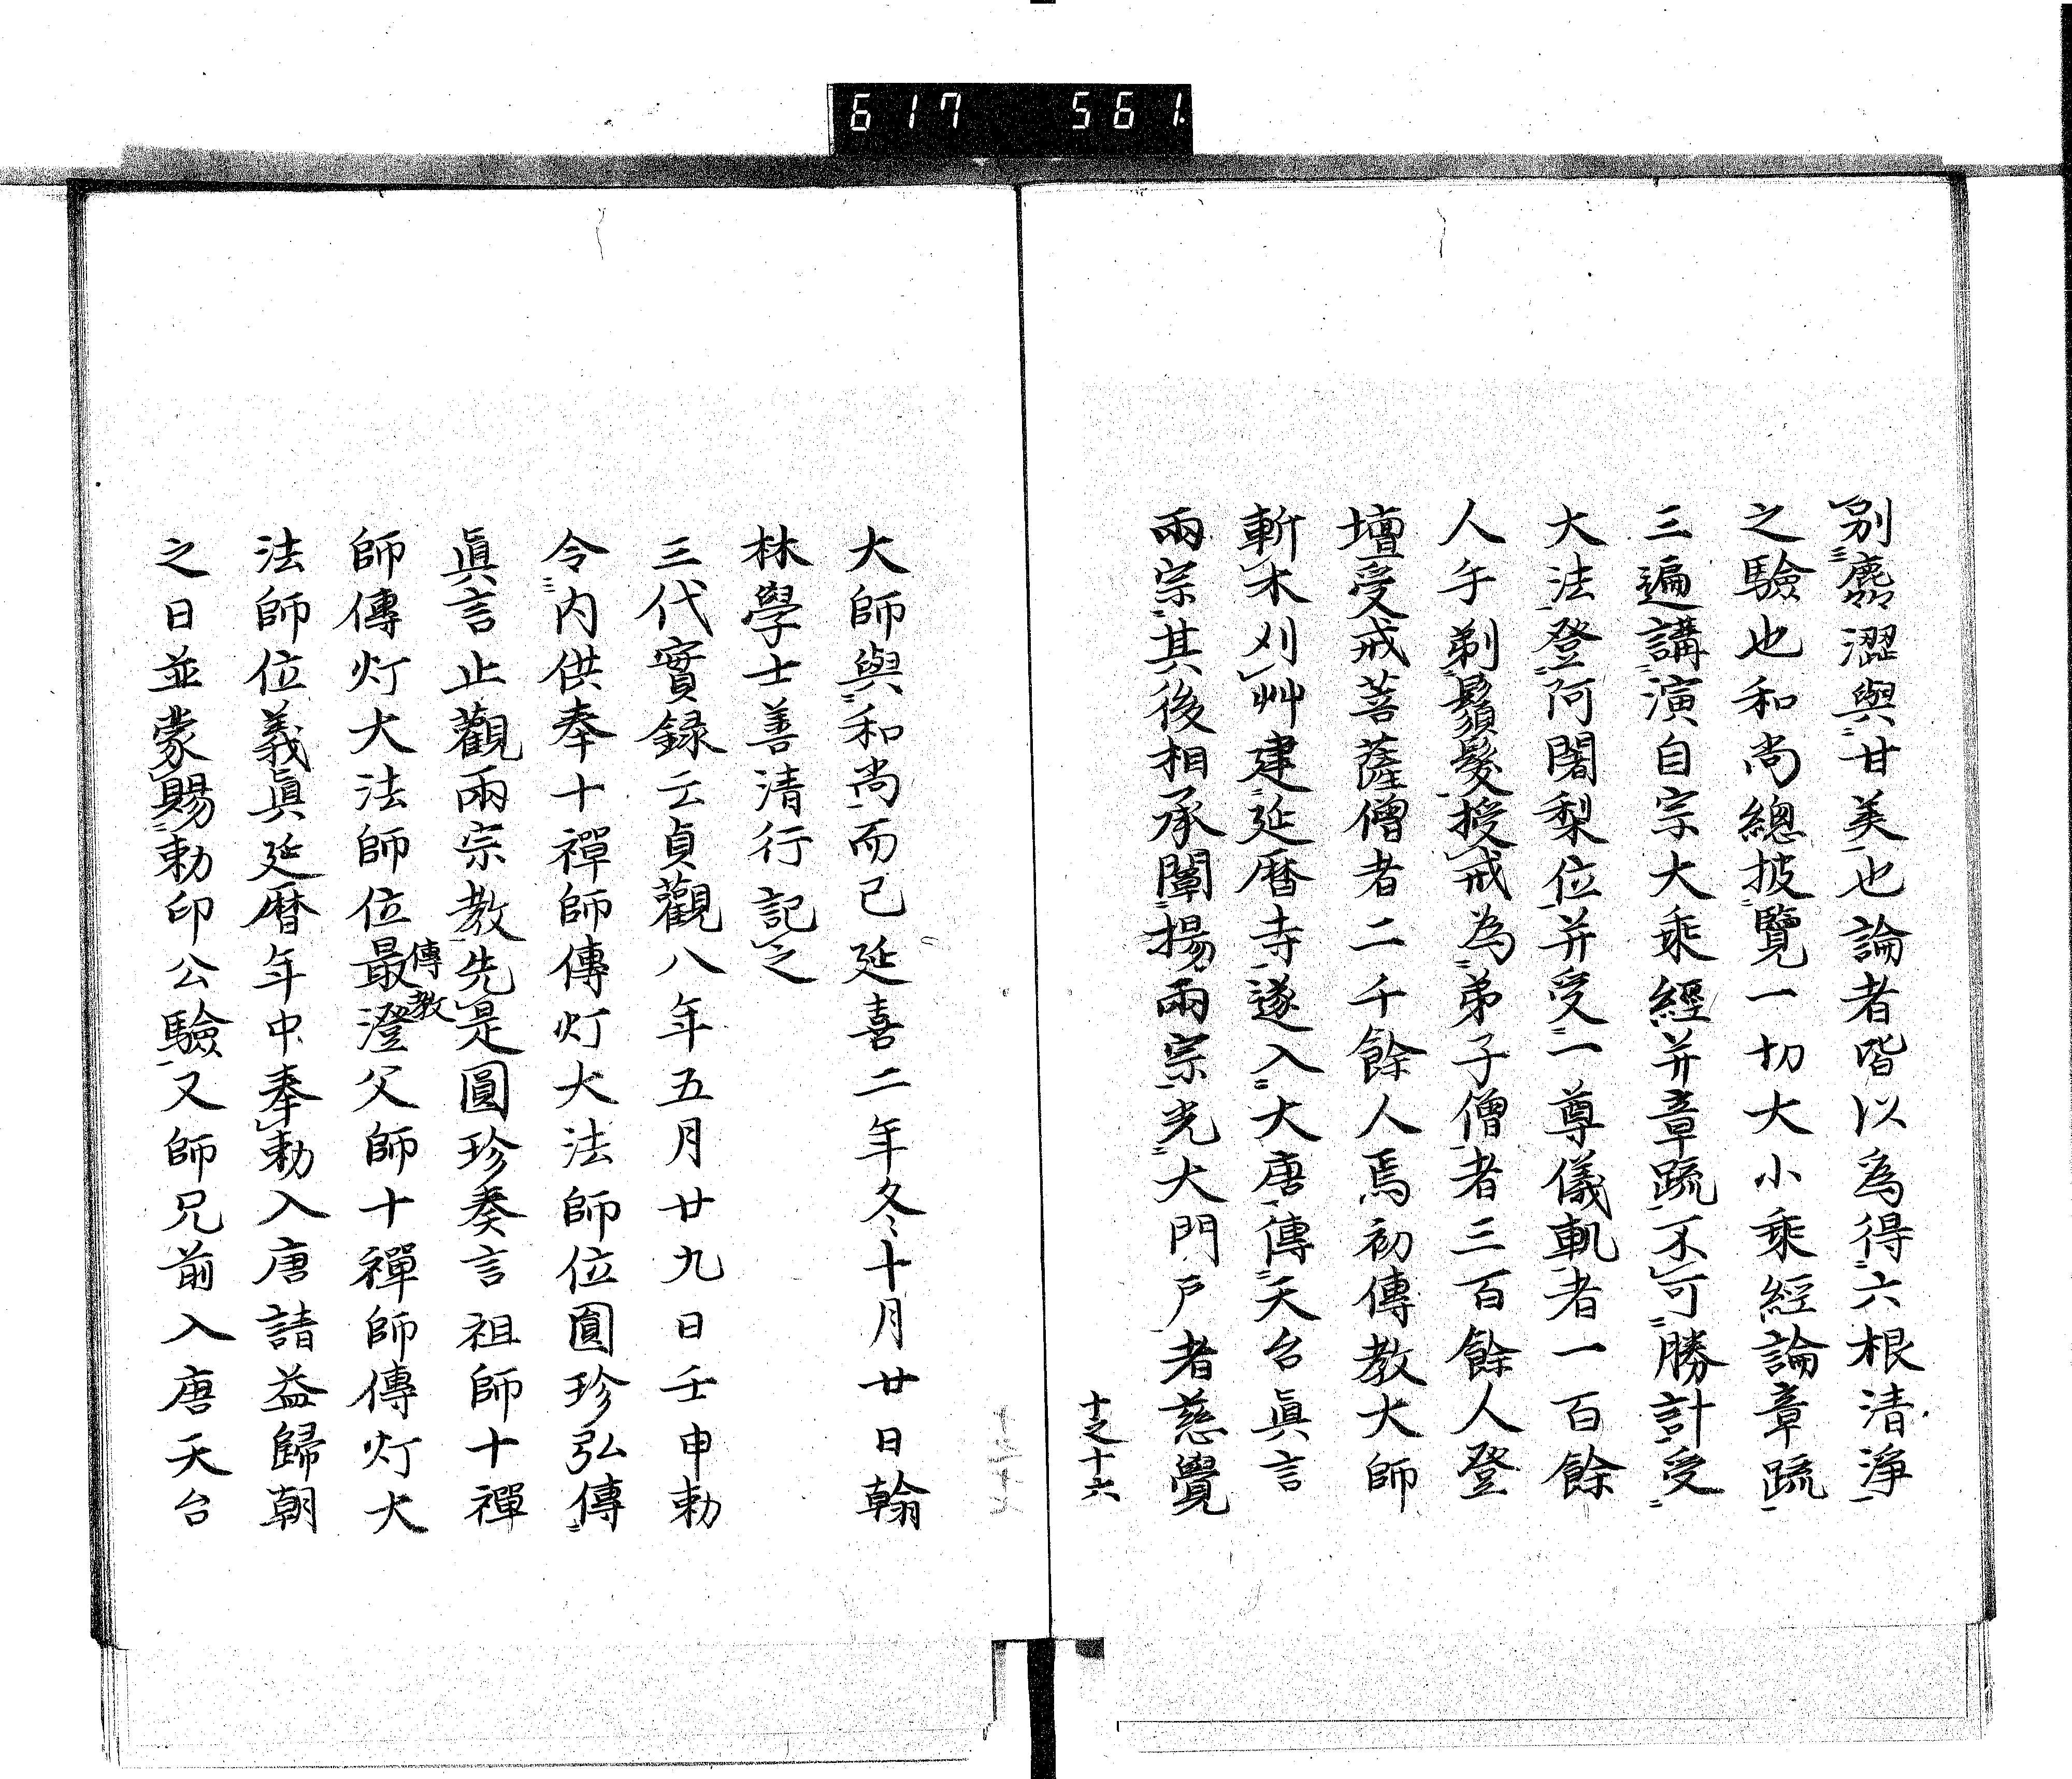 617 561.
別麁澀與甘美也論者皆以爲得六根清淨
之驗也和尚總披覽一切大小乘經論章䟽
三遍講演自宗大乘經并章䟽不可勝計受
大法登阿闍梨位并受一尊儀軌者一百餘
人手剃鬚髮授戒為弟子僧者三百餘人登
壇受戒菩薩僧者二千餘人焉初傳教大師
斬木刈艸建延暦寺遂入大唐傳天台眞言
兩宗其後相承闡揚兩宗光大門戸者慈覺
十之十六
大師與和尚而已延喜二年冬十月廿日翰
林學士善清行記之
三代實録云貞觀八年五月廿九日壬申勅
令内供奉十禪師傳灯大法師位圓珍弘傳
眞言止觀兩宗教先是圓珍奏言祖師十禪
師傳灯大法師位最澄父師十禪師傳灯大
傳教
法師位義眞延暦年中奉勅入唐請益歸朝
之日並蒙賜勅印公驗又師兄前入唐天台